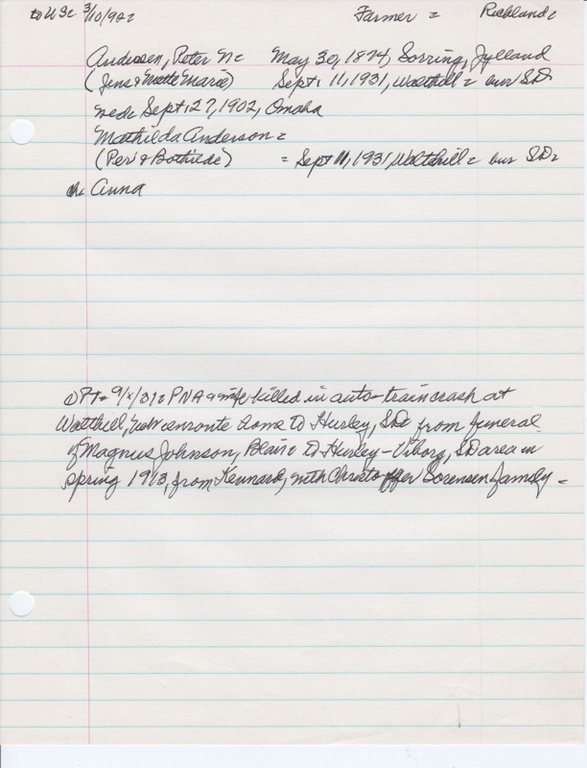 to U.S. 3/10/90. Farmer = Richland.
Andersen, Peter N. May 30, 1874, Sorring, Jylland
(Jens & Mette Marie) Sept. 11, 1931, Walthill = bur SD.
wed. Sept. 27, 1902, Omaha
Mathilda Anderson =
(Per & Bothilde) = Sept 11, 1931, Walthill = bur SD.
ch. Anna
PT = 9/ /31 = PNA & wife killed in auto-train crash at
Walthill, enroute home to Hurley, SD. from funeral
of Magnus Johnson, Blair = to Hurley-Viborg, SD area in
spring 1913, from Kennard, with Christoffer Sorensen family =